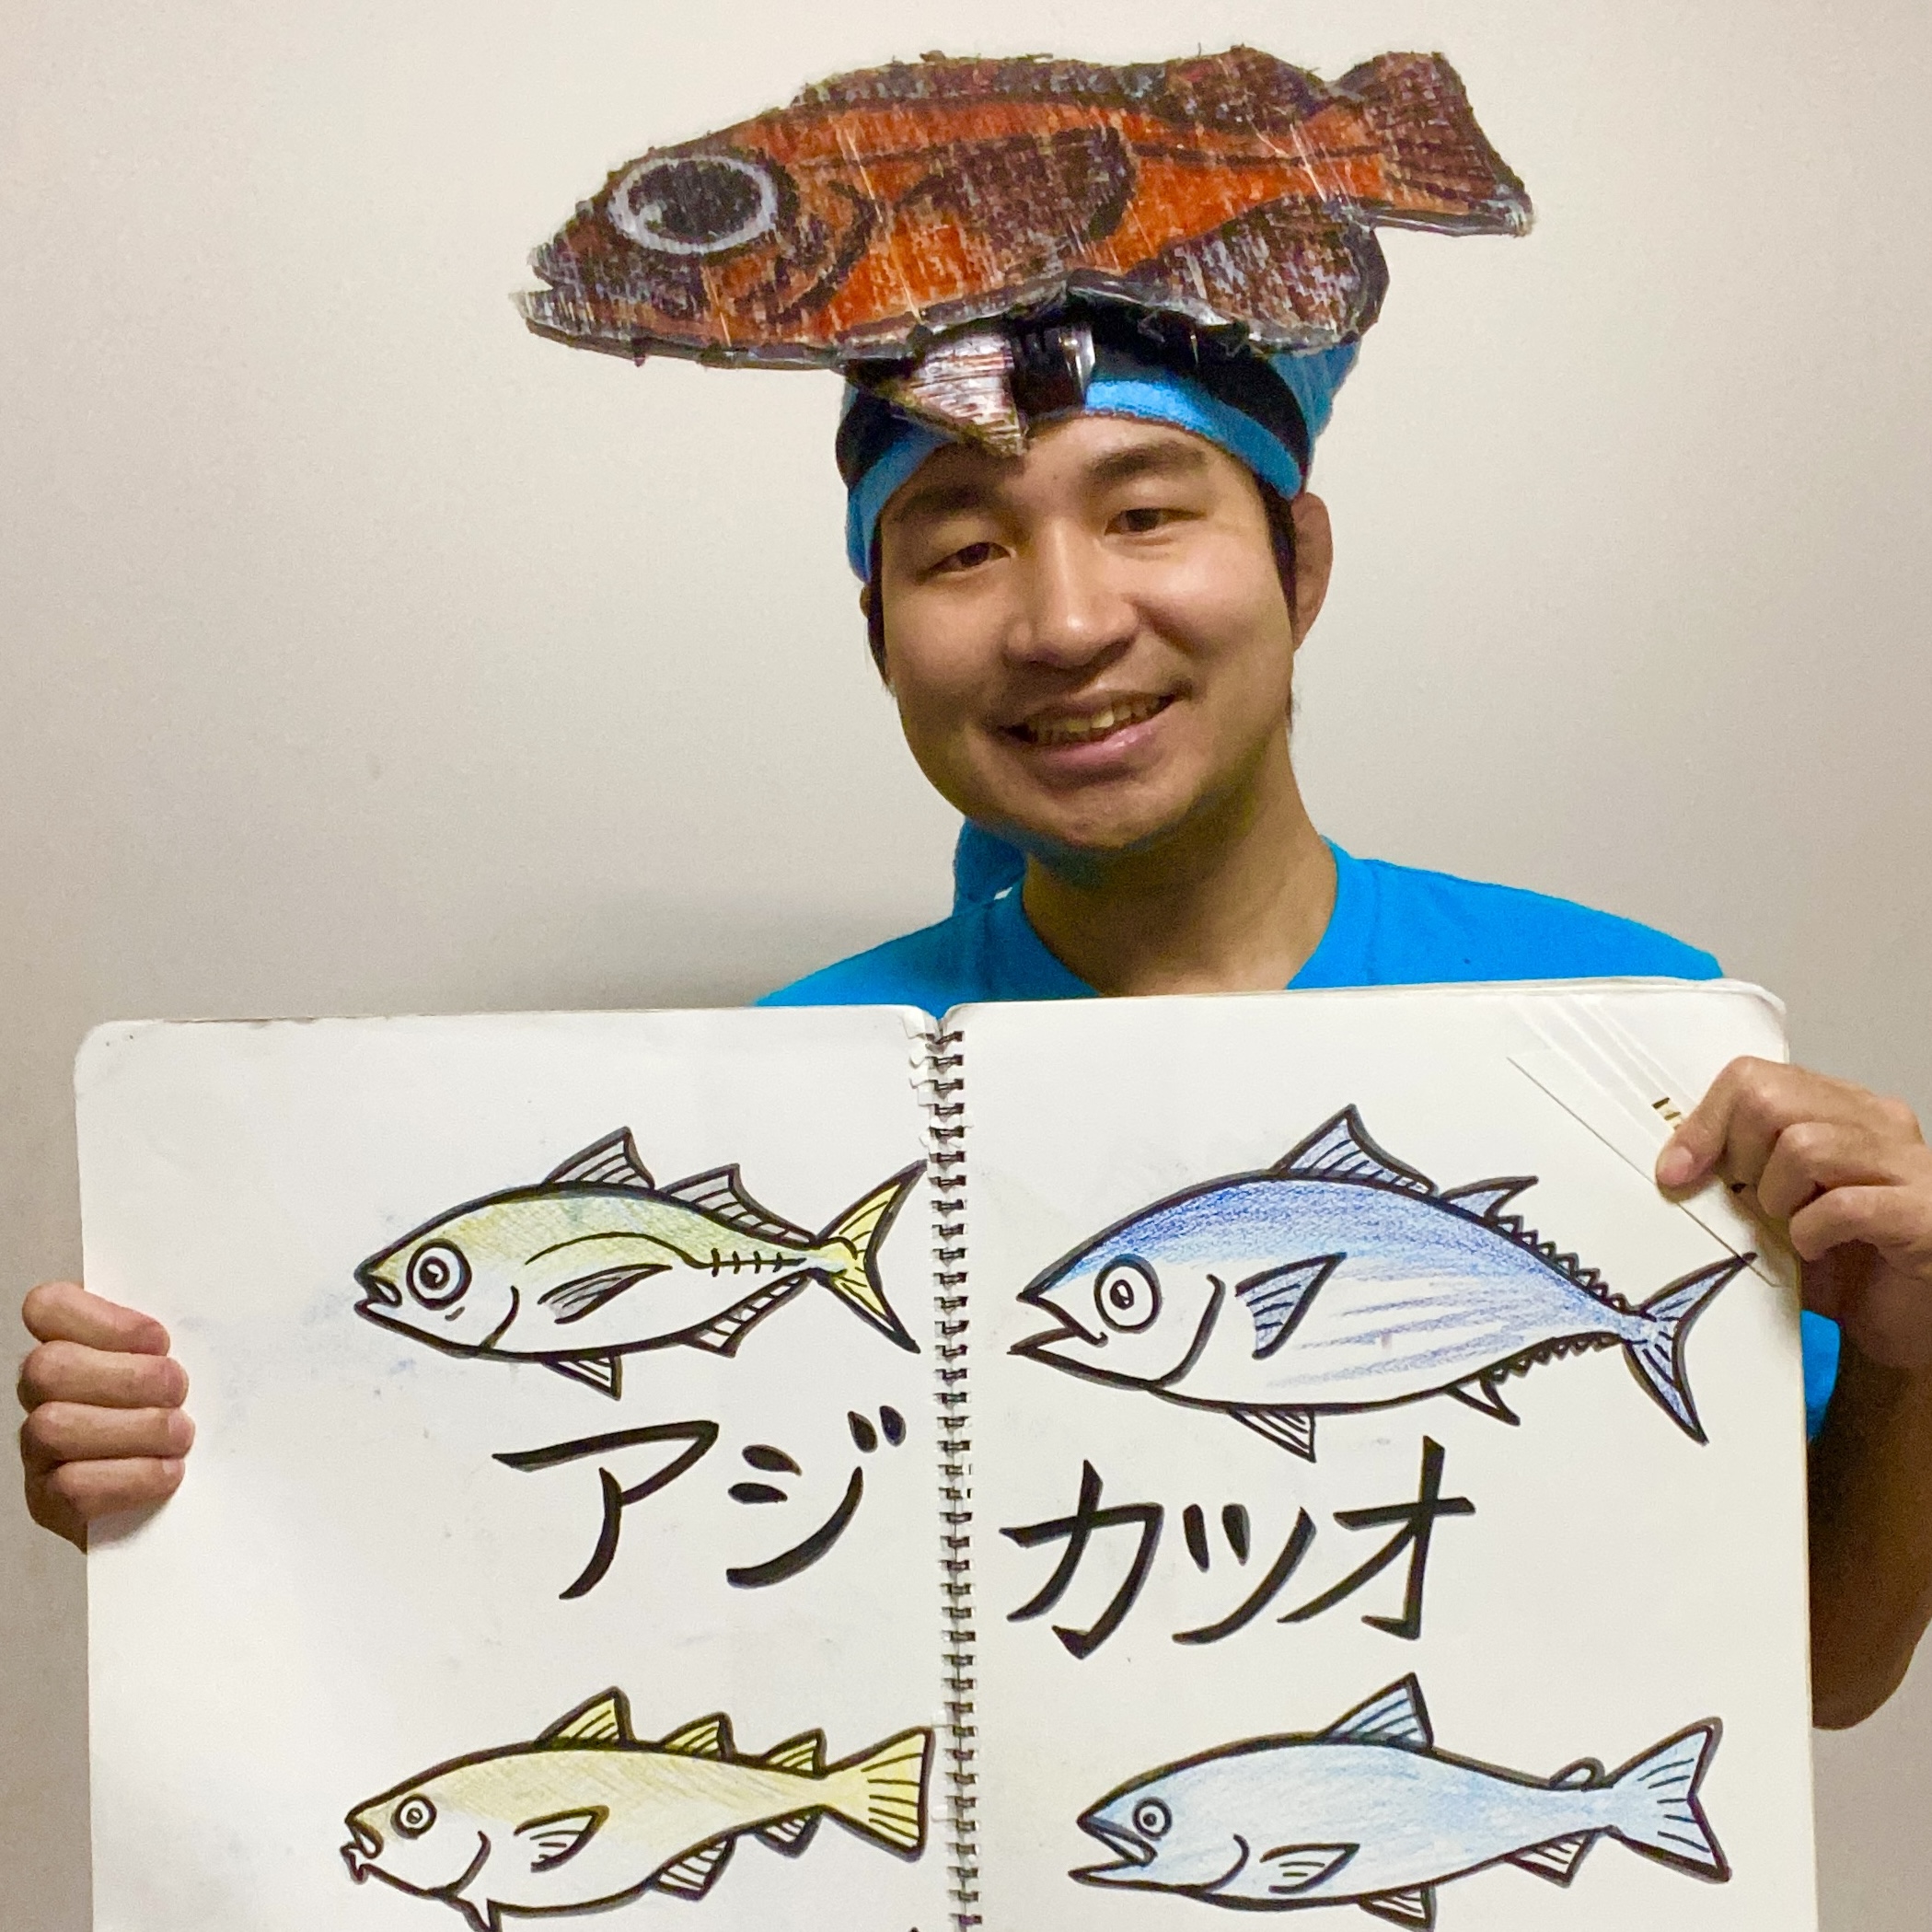 アジ
カツオ